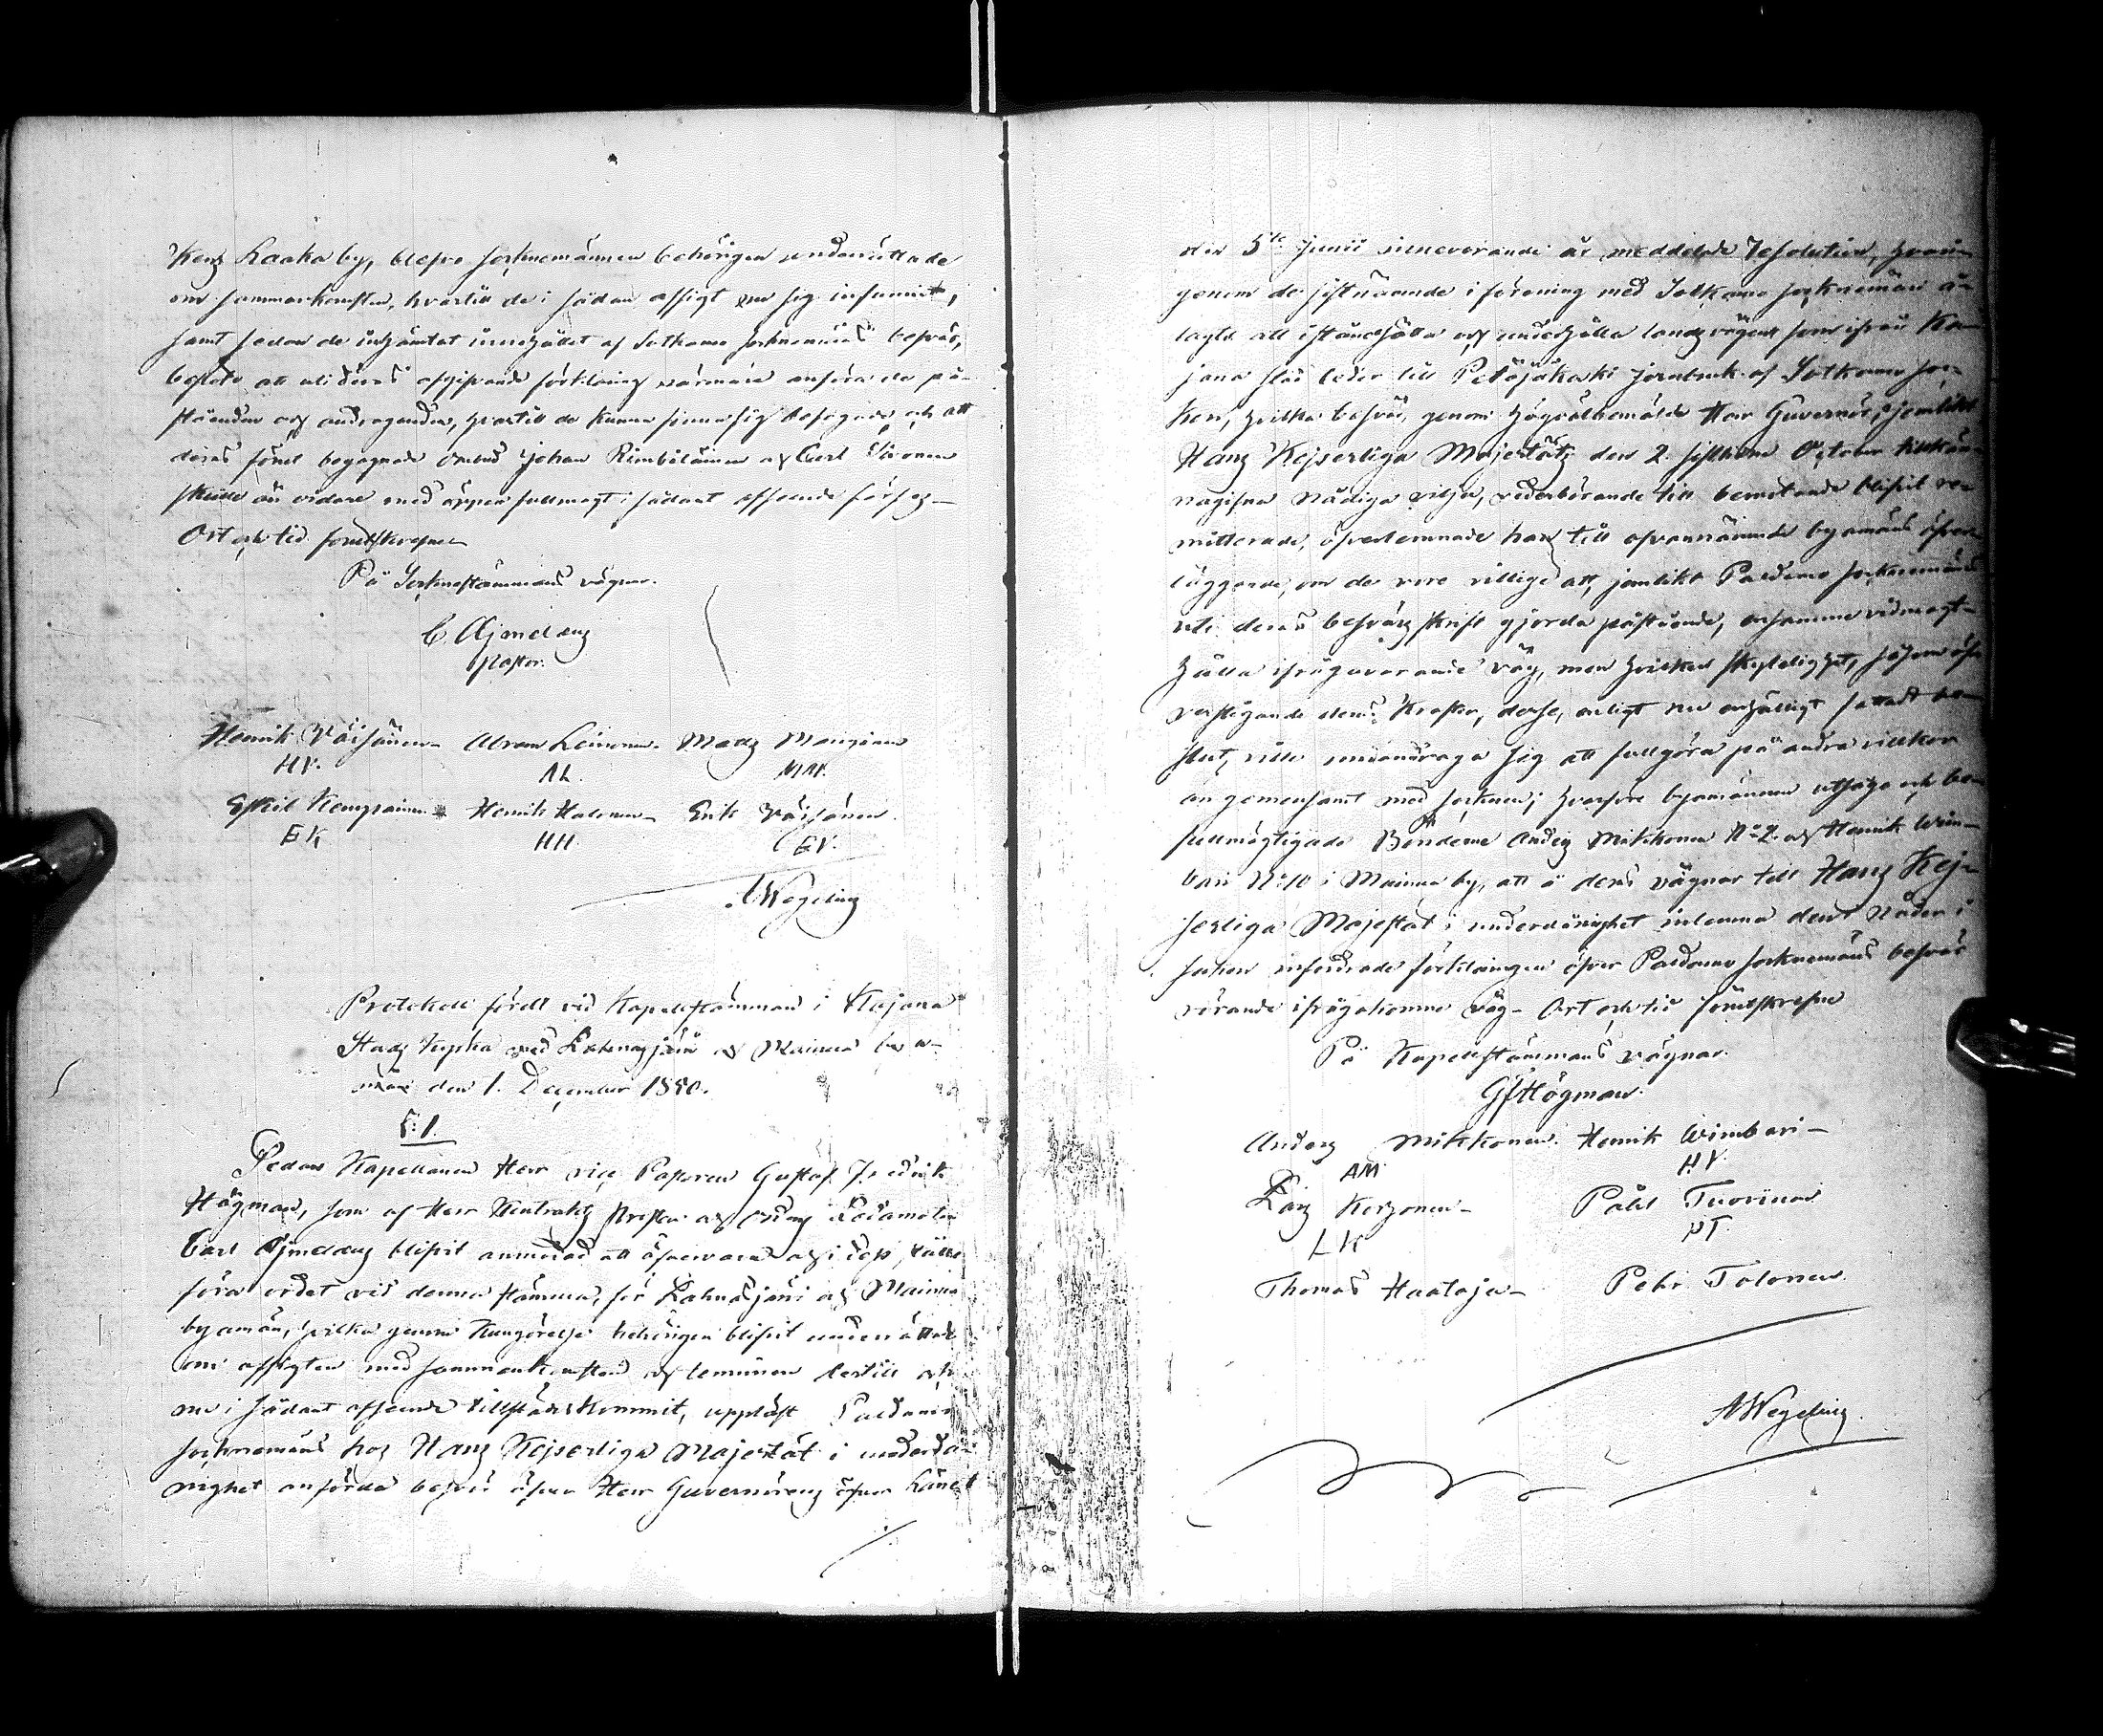 Kens Laaka by, blefvo Sockenemännen behörigen underrättade
om sammankomsten, hvartill de i sådan afsigt nu sig infunnit,
samt sedan de inhämtat innehållet af Sotkamo Sockenemäns besvär,
beslöto att vid deras afgifvande förklaring närmare anföra de på-
ståenden och andraganden, hvartill de kunna finna sig befogade, och att
deras förut begagnade Ombud Johan Rimbiläinen och Carl Sivonen
skulle än vidare med öppen fullmagt i sådant afseende förses_
Ort och tid förutskrefne
På Sockenestämmans vägnar.
C. Ajmelæus
Pastor.
Henrik Väisänen_ Abram Leinonen_ Mats Manginen
HV. AL. MM.
Eskil Kemppainen_ Henrik Halonen_ Erik Väisänen
EK HH. EV.
A Wegelius
Protokoll fördt vid Kapellstämman i Kajana
Stads Kyrka med Lahnasjärvi och Mainua bya-
män den 1. December 1850.
§: 1.
Sedan Kapellanen Herr vice Pastoren Gustaf Fredrik
Högman, som af Herr Kontrakts Prosten och Ordens Ledamoten
Carl Ajmelæus blifvit anmodad att öfvervara och i dess ställe
föra ordet vid denna stämma, för Lahnasjärvi och Mainua
byamän, hvilka genom Kungörelse behörigen blifvit underrättade
om afsigten med sammankomsten och terminen dertill och
nu i sådant afseende tillstädeskommit, uppläst Paldamo
Sockenemäns hos Hans Kejserliga Majestät i underdå-
nighet anförda besvär öfver Herr Guvernörens öfver Länet
den 5te Junii innevarande år meddelade Resolution, hvari-
genom de sistnämnde i förening med Sotkamo Sockenemän å-
lagts att iståndsätta och underhålla landsvägen som ifrån Ka-
jana stad leder till Petäjäkoski Jernbruk af Sotkamo Soc-
ken, hvilka besvär, genom högvälbemälde Herr Guvernör, jemlikt
Hans Kejserliga Majestäts den 2. sistledne October tillkän-
nagifna Nådiga vilja, vederbörande till bemötande blifvit re-
mitterade, öfverlemnade han till ofvannämnde byamäns öfver-
läggande, om de vore villige att, jemlikt Paldamo Sockenemäns
uti deras besvärsskrift gjorda påstående, ensamme vidmagt-
hålla ifrågavarande väg, men hvilken skyldighet, såsom öf-
verstigande deras krafter, desse, enligt nu enhälligt fattadt be-
slut, ville undandraga sig att fullgöra på andra villkor
än gemensamt med Socknen; hvarföre byamännen utsågo och be-
fullmägtigade Bönderne Anders Mikkonen No 2. och Henrik Wim-
bari No 10 i Mainua by, att å deras vägnar till Hans Kej-
serliga Majestät i underdånighet inlemna den i Nåder i
saken infordrade förklaringen öfver Paldamo Sockenemäns besvär
rörande ifrågakomne väg_ Ort och tid förutskrefne
På Kapellstämmans vägnar.
GFHögman.
Anders Mikkonen. Henrik Wimbari_
AM HV.
Lars Kerzonen_ Påhl Tuovinen
LK PT.
Thomas Haataja_ Pehr Tolonen.
A Wegelius